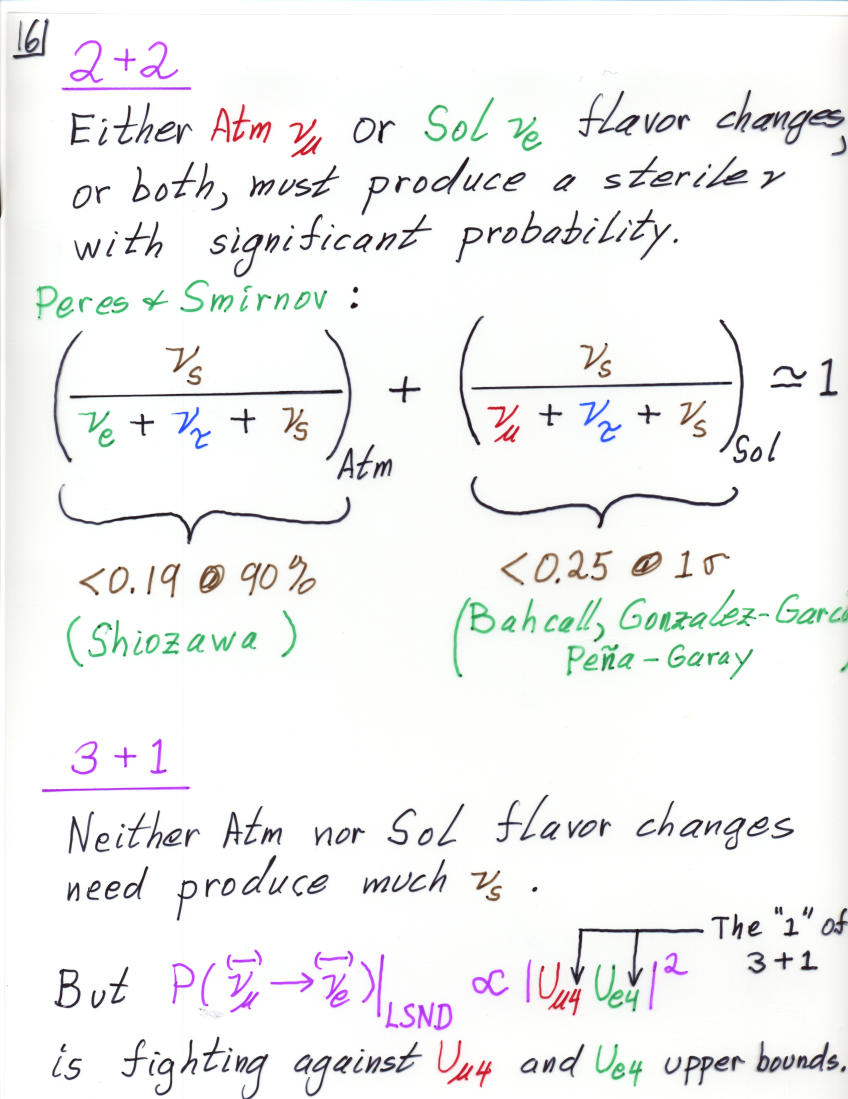 16
2+2
Either Atm νμ or Sol νe flavor changes,
or both, must produce a sterile ν
with significant probability.
Peres & Smirnov :
( νs / (νe + ντ + νs) )Atm + ( νs / (νμ + ντ + νs) )Sol ≃ 1
<0.19 @ 90% <0.25 @ 1σ
(Shiozawa) (Bahcall, Gonzalez-Garci
Peña-Garay)
3+1
Neither Atm nor Sol flavor changes
need produce much νs .
The "1" of
3+1
But P((ν̄)μ → (ν̄)e)|LSND ∝ |Uμ4 Ue4|²
is fighting against Uμ4 and Ue4 upper bounds.